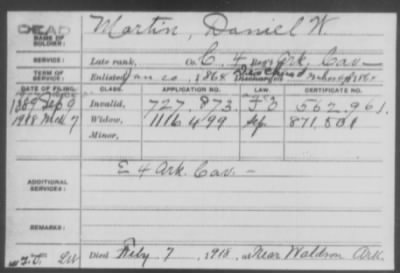 DEAD
NAME OF SOLDIER: Martin, Daniel W.
SERVICE: Late rank, Co. C, 4 Reg't Ark, Cav
TERM OF SERVICE: Enlisted Jan 20, 1864 Discharged 186
DATE OF FILING. CLASS. APPLICATION NO. LAW. CERTIFICATE NO.
1889 Sep 9 Invalid, 727.873. 562.961.
1918 Mch 7 Widow, 1116499 871,501
Minor,
ADDITIONAL SERVICES: E 4 Ark. Cav. -
REMARKS:
Died Feby 7, 1918, at Near Waldron Ark.